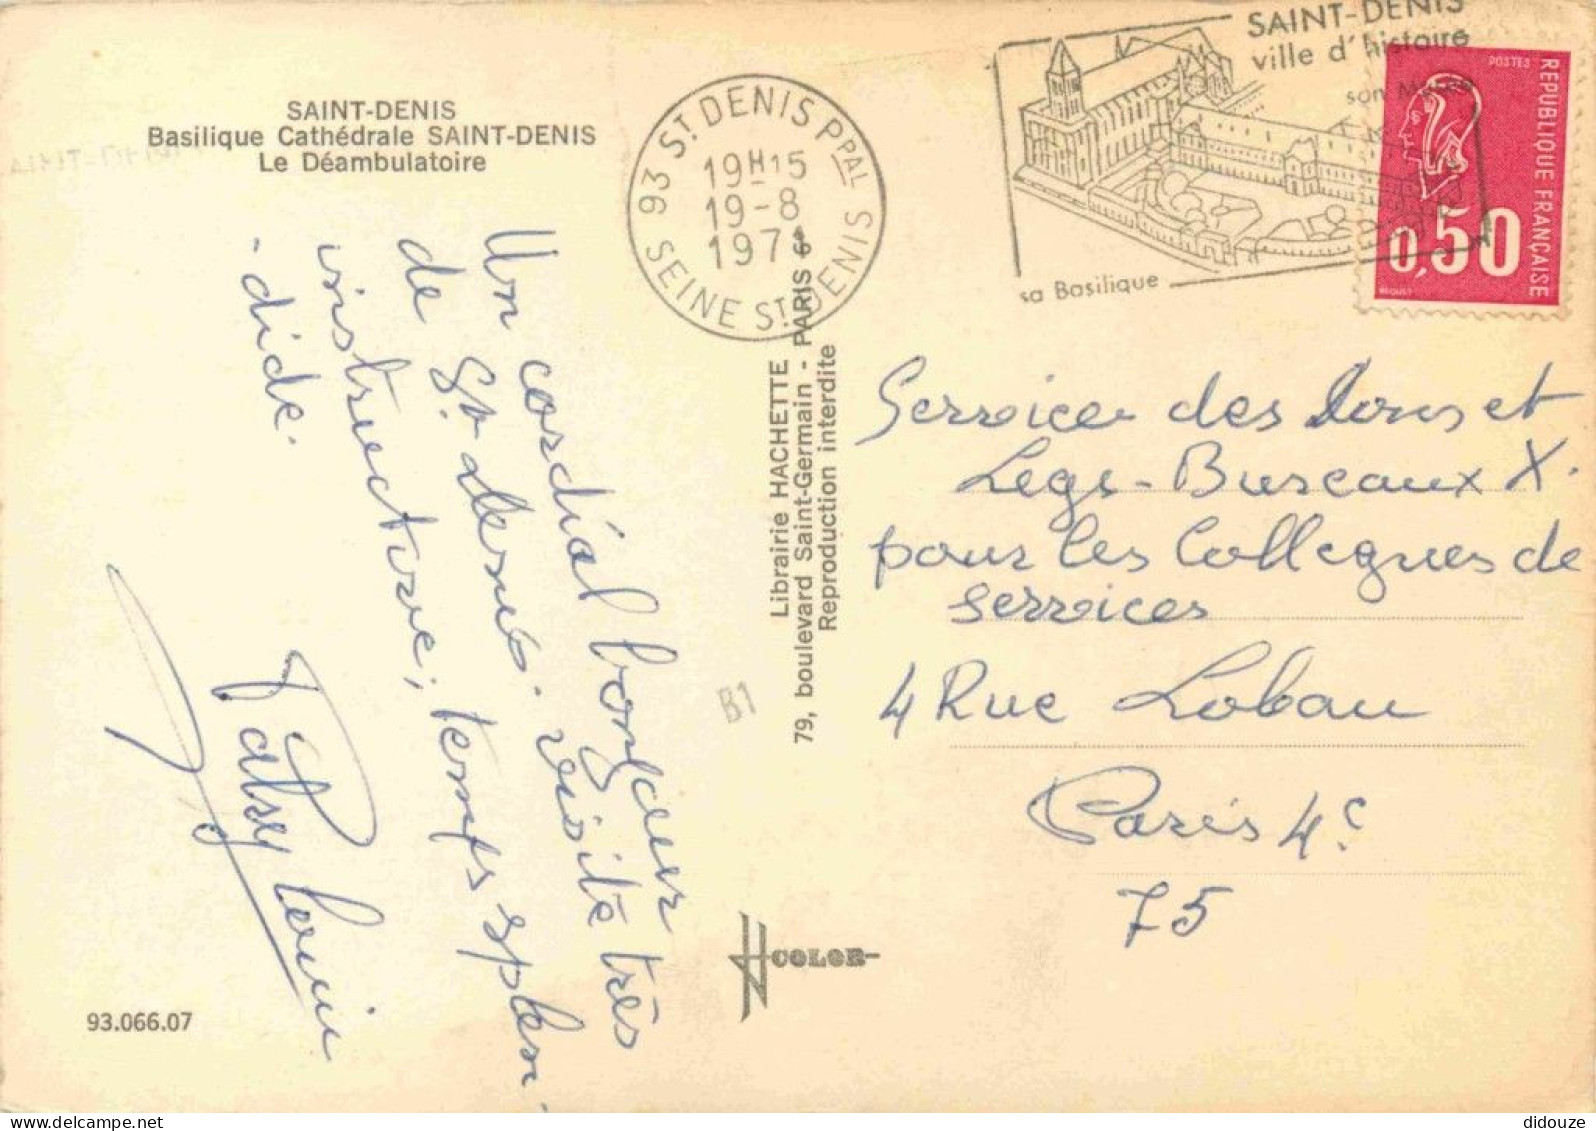 SAINT-DENIS
Basilique Cathédrale SAINT-DENIS
Le Déambulatoire
93 ST DENIS PPAL
19H15
19-8
1971
SEINE ST DENIS
SAINT-DENIS
ville d'histoire
son Musée
sa Basilique
POSTES
REPUBLIQUE FRANÇAISE
0,50
BEQUET
Un cordial bonjour
de St Denis. visite très
instructive; temps splen-
-dide.
Librairie HACHETTE
79, boulevard Saint-Germain - PARIS 6e
Reproduction interdite
B1
Service des Dons et
Legs-Bureaux X.
pour les Collegues de
services
4 Rue Lobau
Paris 4e
75
COLOR
93.066.07
didouze
delcampe.net